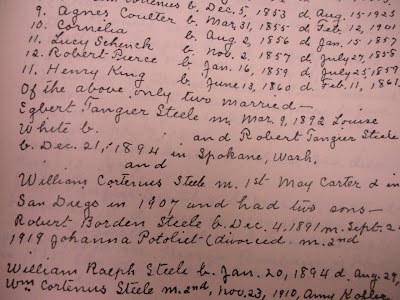 Cortenus b. Dec. 5, 1853 d. Aug. 15 1925
9. Agnes Coulter b. Mar. 31, 1855 d. Feb. 12, 1901
10. Cornelia b. Aug. 2, 1856 d. Jan. 15 1857
11. Lucy Schenck b. Nov. 2, 1857 d. July 27, 1858
12. Robert Pierce b. Jan. 16, 1859 d. July 25, 1859
11. Henry King b. June 13, 1860 d. Feb. 11, 1861.
Of the above only two married—
Egbert Tangier Steele m. Mar. 9, 1892 Louise
White b. and Robert Tangier Steele
b. Dec. 21, 1894 in Spokane, Wash.
and
William Cortenus Steele m. 1st May Carter d in
San Diego in 1907 and had two sons—
Robert Borden Steele b. Dec. 4, 1891 m. Sept. 2
1919 Johanna Potoliet (divorced m. 2nd
William Ralph Steele b. Jan. 20, 1894 d. Aug. 29,
Wm Cortenus Steele m. 2nd, Nov. 23, 1910, Amy Kohler